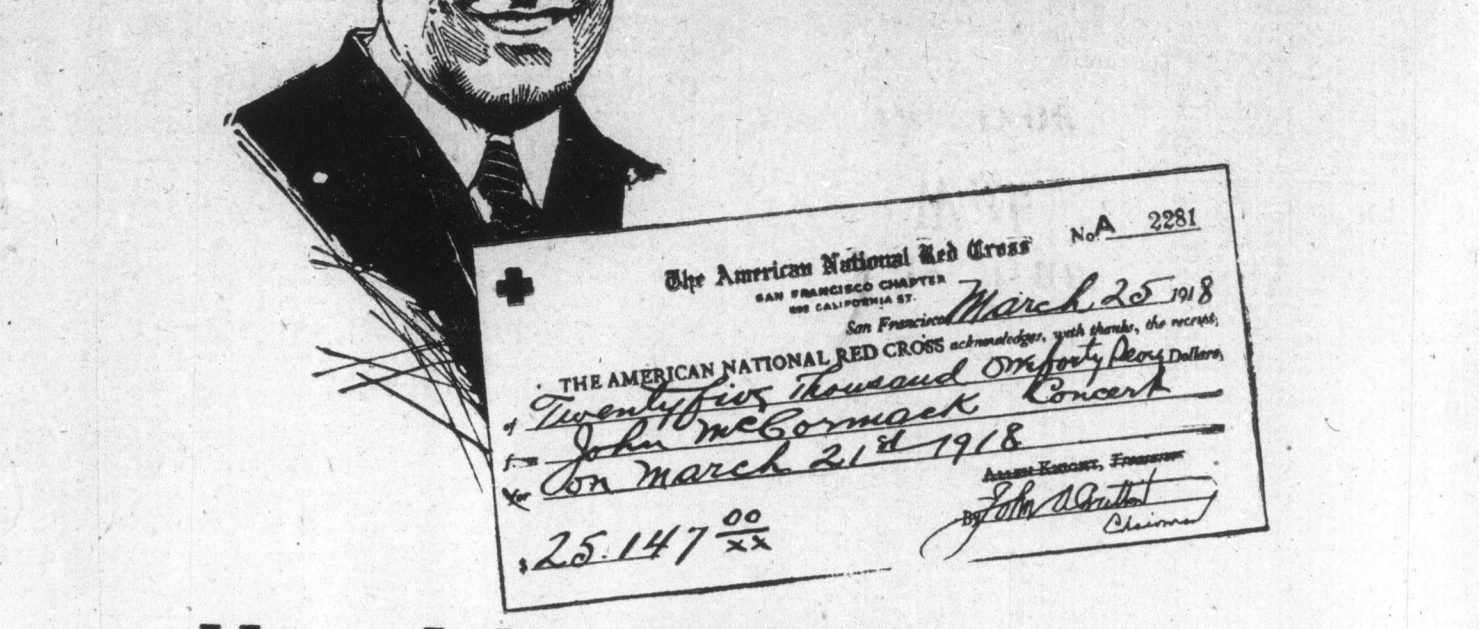 No. A 2281
The American National Red Cross
SAN FRANCISCO CHAPTER
CALIFORNIA ST.
San Francisco March 25 1918
THE AMERICAN NATIONAL RED CROSS acknowledges, with thanks, the receipt,
of Twenty five Thousand One forty Seven Dollars,
John McCormack Concert
on March 21st 1918
ALLEN KNIGHT, Treasurer
By John
Chairman
$ 25.147 00/xx